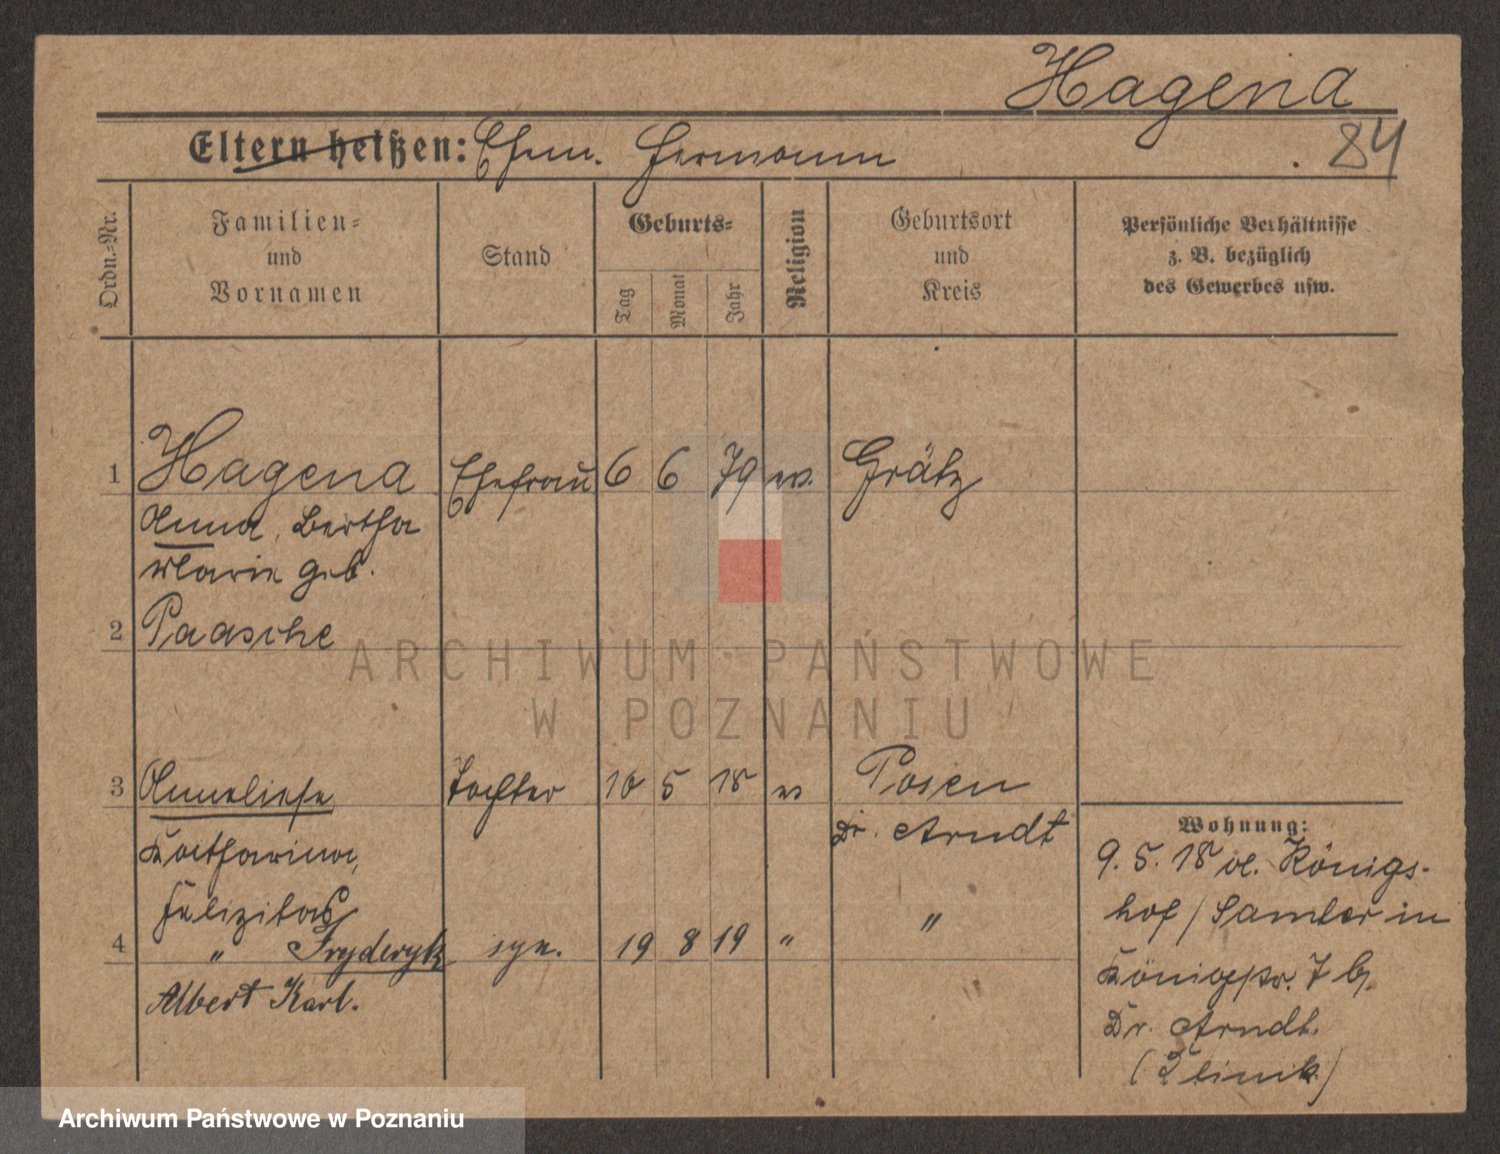 Hagena
84
Eltern heißen: Ehem. Hermann
Ordn.-Nr.
Familien-
und
Vornamen
Stand
Geburts-
Tag
Monat
Jahr
Religion
Geburtsort
und
Kreis
Persönliche Verhältnisse
z. B. bezüglich
des Gewerbes usw.
1 Hagena Ehefrau 6 6 79 ev. Grätz
Anna, Bertha
Marie geb.
2 Paasche
ARCHIWUM PAŃSTWOWE
W POZNANIU
3 Anneliese Tochter 10 5 18 ev Posen
Katharina, Dr. Arndt
Felizitas
4 " Fryderyk syn. 19 8 19 " "
Albert Karl.
Wohnung:
9. 5. 18 Königs-
hof / Samter in
Königstr. 7 b/
Dr. Arndt.
(Klinik)
Archiwum Państwowe w Poznaniu